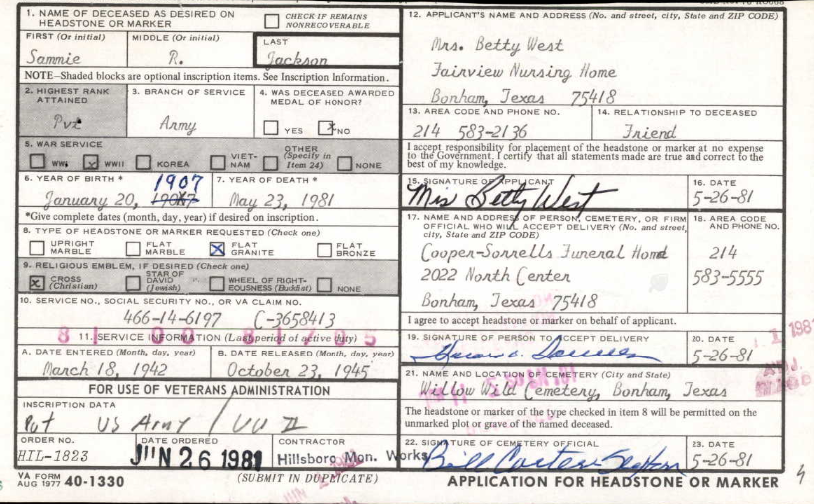 1. NAME OF DECEASED AS DESIRED ON HEADSTONE OR MARKER
CHECK IF REMAINS NONRECOVERABLE
FIRST (Or initial) MIDDLE (Or initial) LAST
Sammie R. Jackson
NOTE—Shaded blocks are optional inscription items. See Inscription Information.
2. HIGHEST RANK ATTAINED
Pvt
3. BRANCH OF SERVICE
Army
4. WAS DECEASED AWARDED MEDAL OF HONOR?
YES x NO
5. WAR SERVICE
WWI x WWII KOREA VIET-NAM OTHER (Specify in Item 24) NONE
6. YEAR OF BIRTH * 1907
January 20,
7. YEAR OF DEATH *
May 23, 1981
*Give complete dates (month, day, year) if desired on inscription.
8. TYPE OF HEADSTONE OR MARKER REQUESTED (Check one)
UPRIGHT MARBLE FLAT MARBLE X FLAT GRANITE FLAT BRONZE
9. RELIGIOUS EMBLEM, IF DESIRED (Check one)
x CROSS (Christian) STAR OF DAVID (Jewish) WHEEL OF RIGHTEOUSNESS (Buddist) NONE
10. SERVICE NO., SOCIAL SECURITY NO., OR VA CLAIM NO.
466-14-6197 C-3658413
11. SERVICE INFORMATION (Last period of active duty)
A. DATE ENTERED (Month, day, year)
March 18, 1942
B. DATE RELEASED (Month, day, year)
October 23, 1945
FOR USE OF VETERANS ADMINISTRATION
INSCRIPTION DATA
Pvt US Army / WW II
ORDER NO.
HIL-1823
DATE ORDERED
JUN 26 1981
CONTRACTOR
Hillsboro Mon. Works
VA FORM AUG 1977 40-1330
(SUBMIT IN DUPLICATE)
12. APPLICANT'S NAME AND ADDRESS (No. and street, city, State and ZIP CODE)
Mrs. Betty West
Fairview Nursing Home
Bonham, Texas 75418
13. AREA CODE AND PHONE NO.
214 583-2136
14. RELATIONSHIP TO DECEASED
Friend
I accept responsibility for placement of the headstone or marker at no expense
to the Government. I certify that all statements made are true and correct to the
best of my knowledge.
15. SIGNATURE OF APPLICANT
Mrs Betty West
16. DATE
5-26-81
17. NAME AND ADDRESS OF PERSON, CEMETERY, OR FIRM
OFFICIAL WHO WILL ACCEPT DELIVERY (No. and street,
city, State and ZIP CODE)
Cooper-Sorrells Funeral Home
2022 North Center
Bonham, Texas 75418
18. AREA CODE AND PHONE NO.
214
583-5555
I agree to accept headstone or marker on behalf of applicant.
19. SIGNATURE OF PERSON TO ACCEPT DELIVERY
20. DATE
5-26-81
21. NAME AND LOCATION OF CEMETERY (City and State)
Willow Wild Cemetery, Bonham, Texas
The headstone or marker of the type checked in item 8 will be permitted on the
unmarked plot or grave of the named deceased.
22. SIGNATURE OF CEMETERY OFFICIAL
23. DATE
5-26-81
APPLICATION FOR HEADSTONE OR MARKER